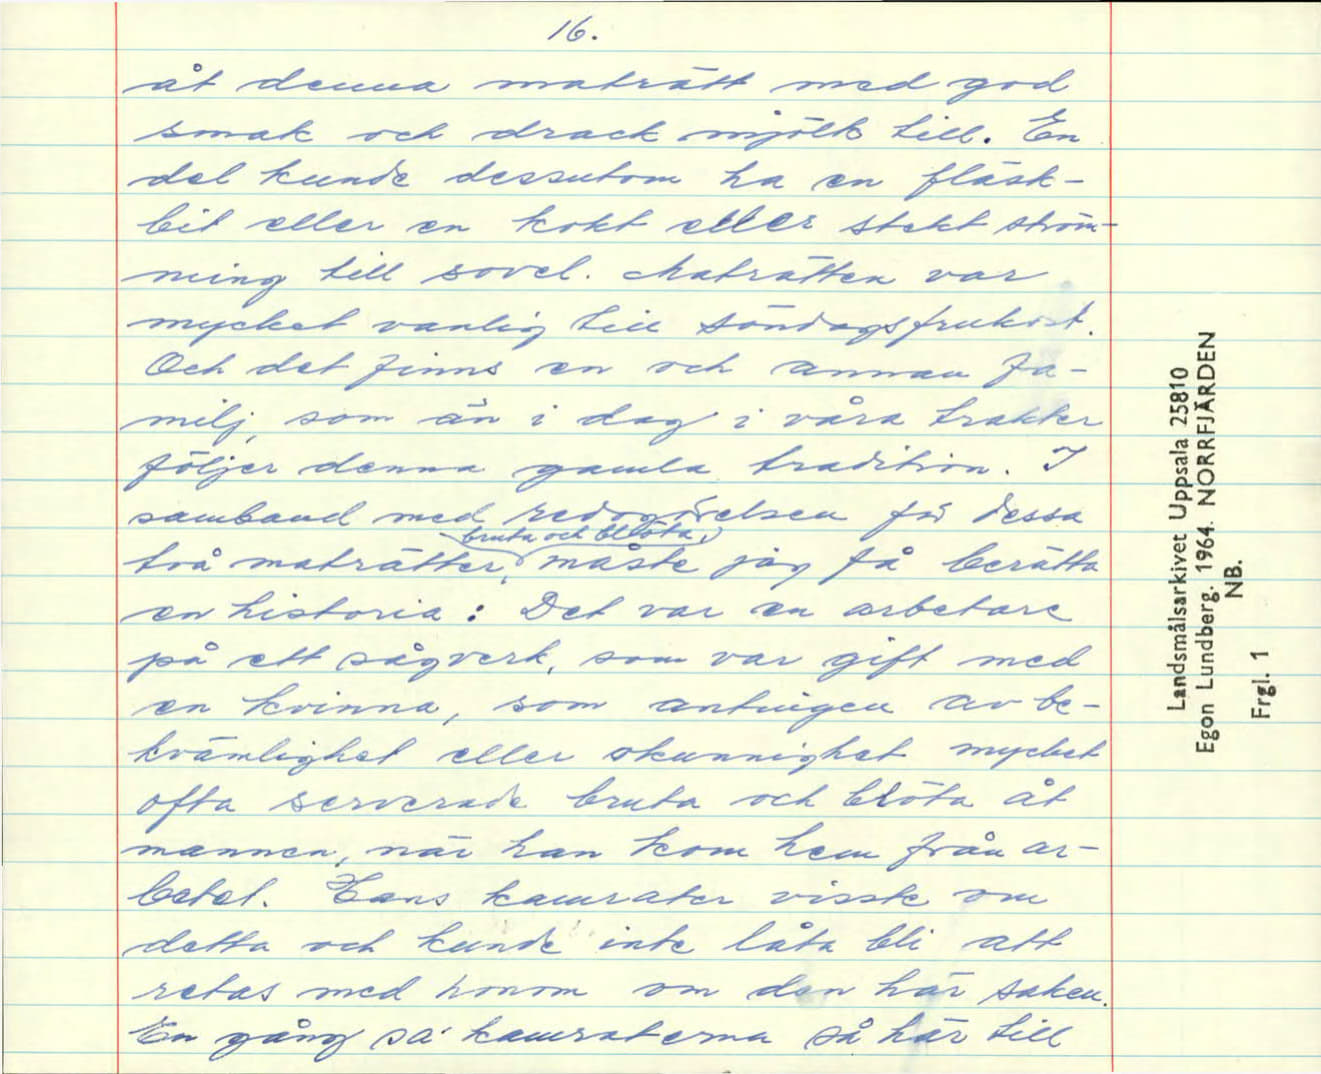 16.
åt denna maträtt med god
smak och drack mjölk till. En
del kunde dessutom ha en fläsk-
bit eller en kokt eller stekt ström-
ming till sovel. Maträtten var
mycket vanlig till söndagsfrukost.
Och det finns en och annan fa-
milj, som än i dag i våra trakter
följer denna gamla tradition. I
samband med redogörelsen för dessa
bruta och blöta,
två maträtter, måste jag få berätta
en historia: Det var en arbetare
på ett sågverk, som var gift med
en kvinna, som antingen av be-
kvämlighet eller okunnighet mycket
ofta serverade bruta och blöta åt
mannen, när han kom hem från ar-
betet. Hans kamrater visste om
detta och kunde inte låta bli att
retas med honom om den här saken.
En gång sa' kamraterna så här till
Landsmålsarkivet Uppsala 25810
Egon Lundberg. 1964. NORRFJÄRDEN
NB.
Frgl. 1